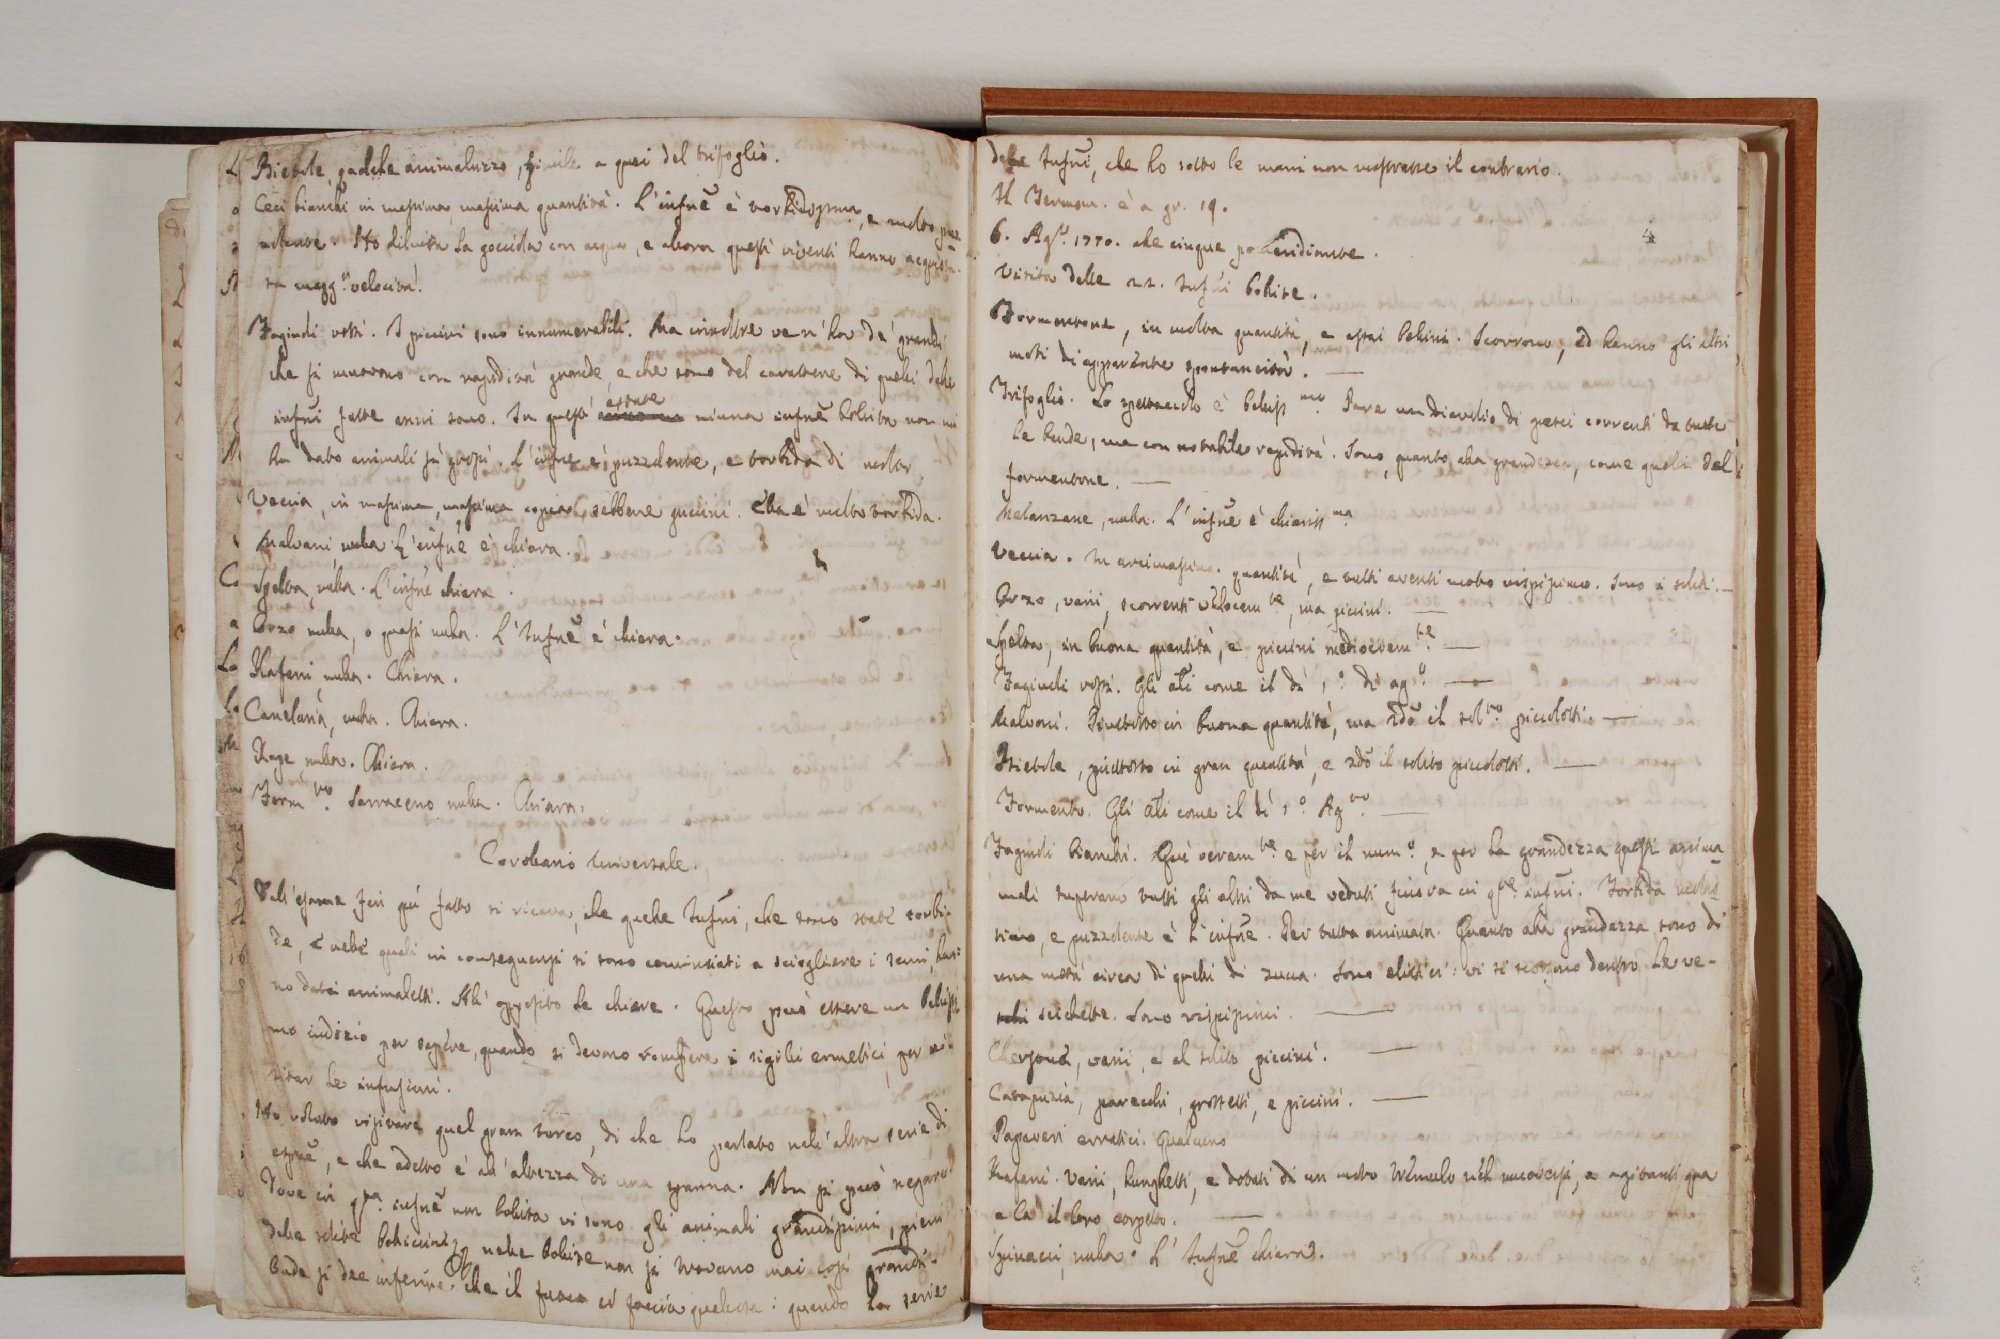 Bietole, qualche animaluzzo, simile a quei del trifoglio.
Ceci bianchi in massima, massima quantità. L'infuſ̄e è torbidissima, e molto puz
zolente. Ho diluita la gocciola con acqua, e allora questi viventi hanno acquista-
ta magg.r velocità.
Fagiuoli rossi. I piccini sono innumerabili. Ma inoltre ve n'ha de' grandi
che si muovono con rapidità grande, e che sono del carattere di quelli delle
infuſ̄i fatte anni sono. In questa estate niuna infuſ̄e bollita non mi
ha dato animali sì grossi. L'infuſ̄e è puzzolente, e torbida di molto.
Veccia, in massima, massima copia, sebbene piccini. Ella è molto torbida.
Malvoni, nulla. L'infuſ̄e è chiara.
Spelta, nulla. L'infuſ̄e chiara.
Orzo nulla, o quasi nulla. L'Infuſ̄e è chiara.
Rafani, nulla. Chiara.
nulla. Chiara.
Rape nulla. Chiara.
Form.to Sarraceno nulla. Chiara.
Corollario Universale.
Dall'esame fin qui fatto si ricava, che quelle Infuſ̄i, che sono state torbi-
de, e nelle quali in conseguenza si sono cominciati a sciogliere i semi, han-
no dati animaletti. All'opposito le chiare. Questo può essere un bellissi
mo indizio per sapere, quando si devono rompere i sigilli ermetici per vi-
sitar le infusioni.
Ho voluto visitare quel gran di che ho parlato nell'altra serie di
e che adesso è all'altezza di una spanna. Non si può negare
Dove in q.ta infuſ̄e non bollita vi sono gli animali grandissimi, pieni
delle solite bollicine, nelle bollite non si trovano mai così grandi.
Onde si dee inferire che il fuoco ci faccia qualcosa: quando la serie
delle Infuſ̄i, che ho sotto le mani non mostrasse il contrario.
Il Termom. è a gr. 19.
4
6. Ag.o 1770. alle cinque pomeridiane.
Visita delle 22. Infuſ̄i bollite.
Formentone, in molta quantità, e assai bellini. Scorrono, ed hanno gli altri
moti di apparente spontaneità. —
Trifoglio. Lo spettacolo è belliss.mo Pare un Diavolio di pesci correnti da tutte
le bande, ma con notabile rapidità. Sono, quanto alla grandezza, come quelli del
formentone. —
Melanzane, nulla. L'infuſ̄e è chiariss.ma
Veccia. In arcimassima quantità, e tutti aventi moto vispissimo. Sono i soliti. —
Orzo, varii, scorrenti velocem.te, ma piccini. —
Spelta, in buona quantità, e piccini mediocrem.te —
Fagiuoli rossi. Gli ati come il dì 1.o di ag.o —
Malvoni. Piuttosto in buona quantità, ma 2do il sol.to piccolotti. —
Bietole, piuttosto in gran quantità, e 2do il solito piccolotti. —
Formento. Gli ati come il dì 1.o Ag.to —
Fagiuoli bianchi. Qui veram.te e per il num.o, e per la grandezza questi anima
mali superano tutti gli altri da me veduti finora in q.te infuſ̄i. Torbida
e puzzolente è l'infuſ̄e. Dei tutta animata. Quanto alla grandezza sono di
una metà circa di quelli di zucca. Sono elittici: vi si scorgono dentro le ve-
scichette. Sono vispissimi. —
varii, e al solito piccini. —
Catapuzia, parecchi, grossetti, e piccini. —
Papaveri erratici. Qualcuno
Rafani. Varii, lunghetti, e dotati di un moto tremulo nel muoversi, e agitanti qua
e là il loro corpetto. —
Spinacci, nulla. L'Infuſ̄e chiara.